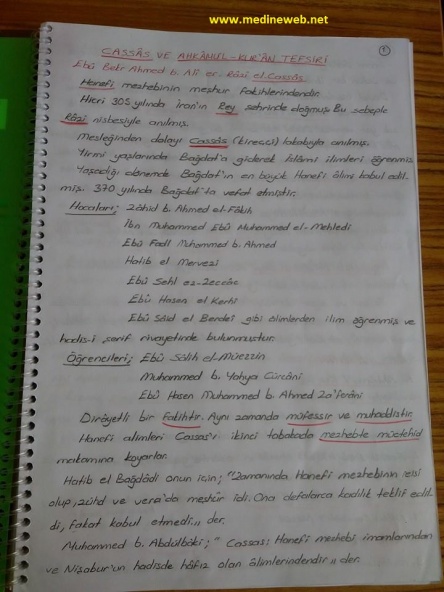 www.medineweb.net
1
CASSÂS VE AHKÂMUL-KUR'ÂN TEFSİRİ
Ebû Bekr Ahmed b. Ali er-Râzi el-Cassâs
Hanefi mezhebinin meşhur fakihlerindendir.
Hicri 305 yılında İran'ın Rey şehrinde doğmuş. Bu sebeple
Râzi nisbesiyle anılmış.
Mesleğinden dolayı Cassâs (kireçci) lakabıyla anılmış.
Yirmi yaşlarında Bağdat'a giderek İslâmi ilimleri öğrenmiş
Yaşadığı dönemde Bağdat'ın en büyük Hanefi âlimi kabul edil-
miş. 370 yılında Bağdat'ta vefat etmiştir.
Hocaları; Zâhid b. Ahmed el-Fâkih
İbn Muhammed Ebû Muhammed el-Mehledi
Ebû Fadl Muhammed b. Ahmed
Hatib el Mervezi
Ebû Sehl ez-Zeccâc
Ebû Hasen el Kerhi
Ebû Sâid el Berdei gibi âlimlerden ilim öğrenmiş ve
hadis-i şerif rivayetinde bulunmuştur.
Öğrencileri; Ebû Salih el-Müezzin
Muhammed b. Yahya Cürcâni
Ebû Hasen Muhammed b. Ahmed Za'ferâni
Dirâyetli bir fakihtir. Aynı zamanda müfessir ve muhaddistir.
Hanefi alimleri Cassas'ı ikinci tabakada mezhebte müctehid
makamına koyarlar.
Hatib el Bağdâdi onun için; "Zamanında Hanefi mezhebinin reisi
olup, zühd ve vera'da meşhur idi. Ona defalarca kadılık teklif edil-
di, fakat kabul etmedi" der.
Muhammed b. Abdülbâki; "Cassas; Hanefi mezhebi imamlarından
ve Nişabur'un hadisde hâfız olan âlimlerindendir" der.